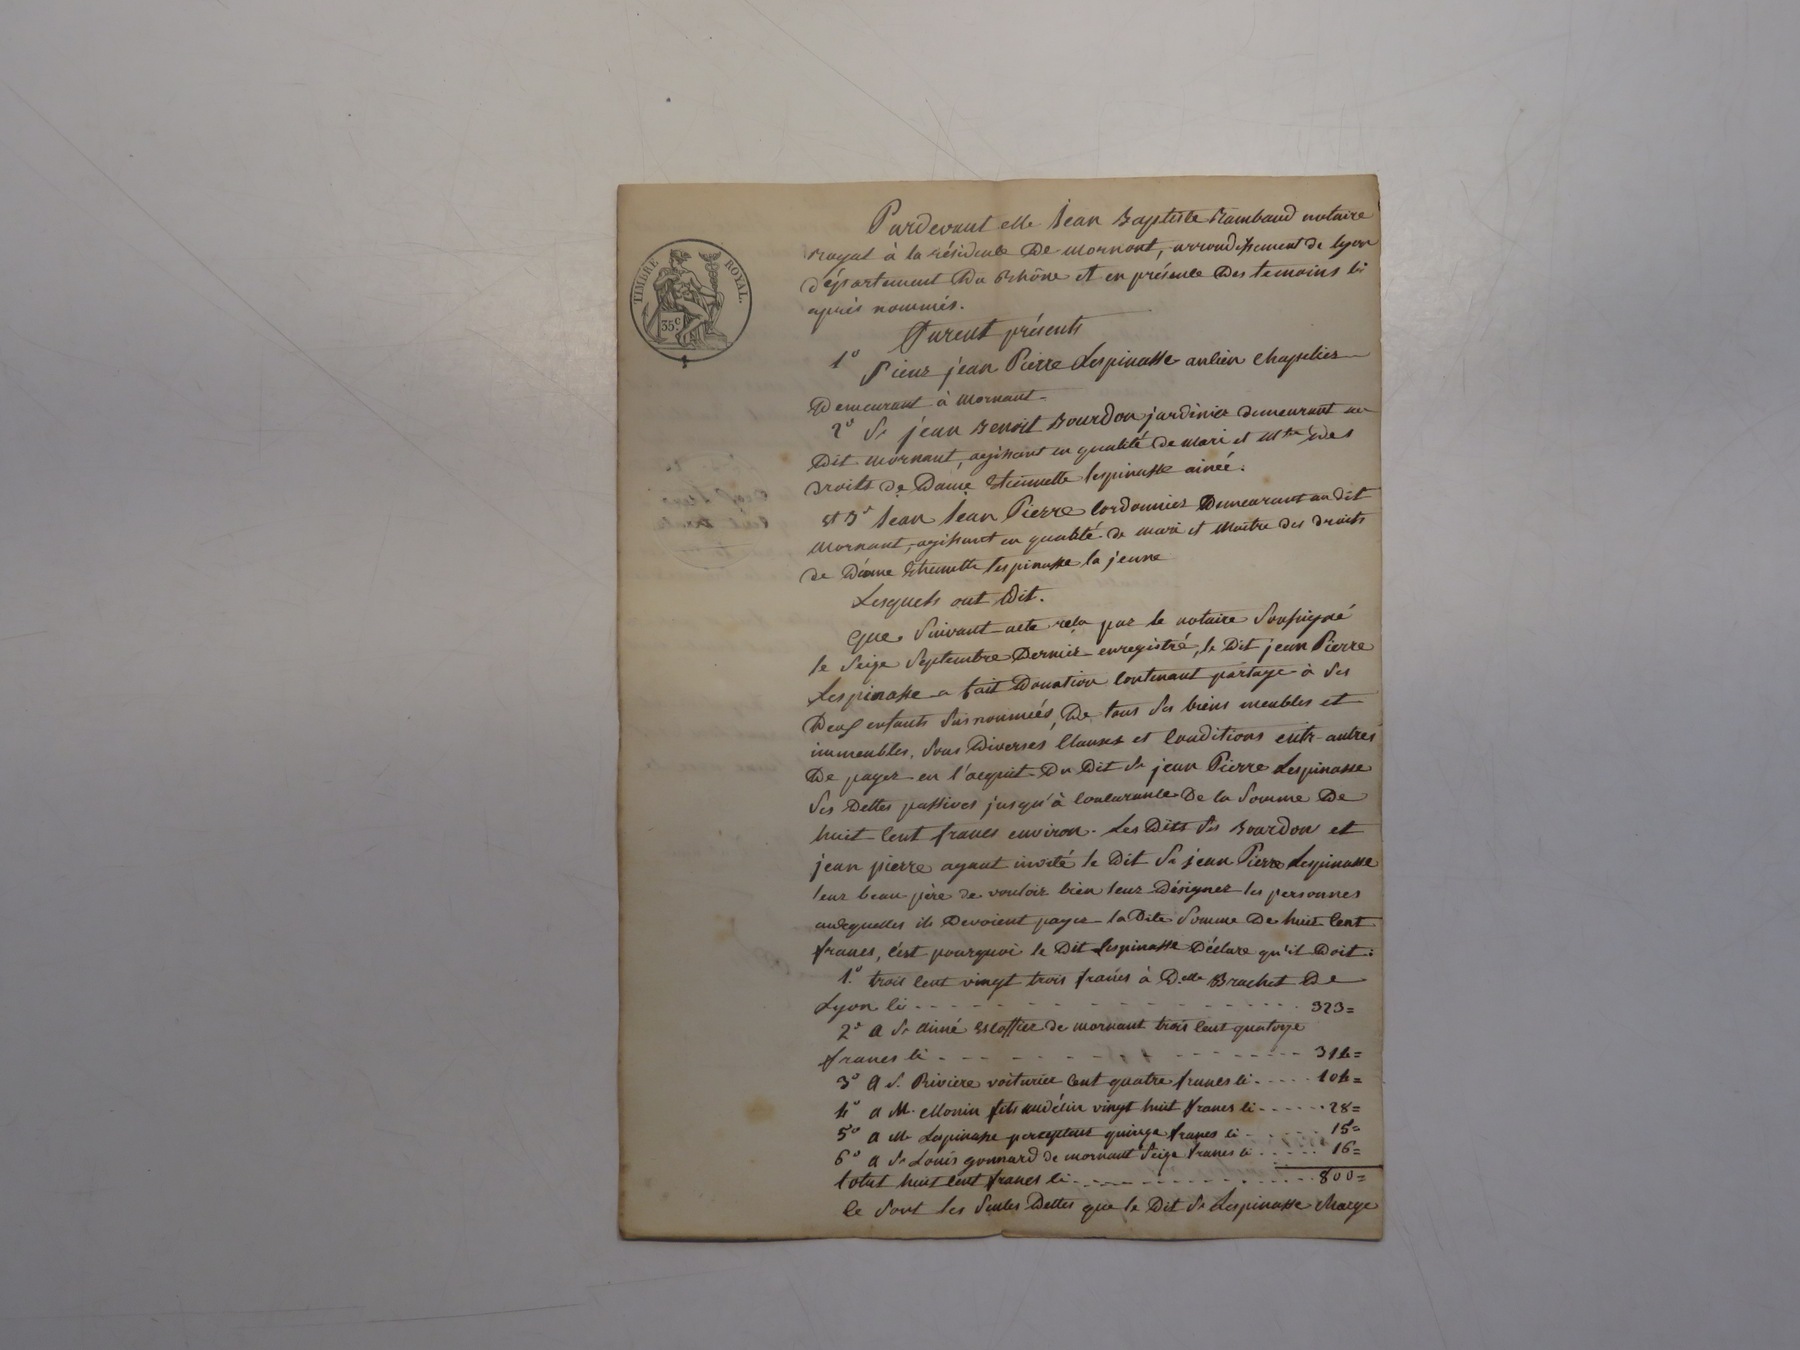 TIMBRE ROYAL.
35c
Pardevant Me Jean Baptiste Rambaud notaire
royal à la résidence De Mornant, arrondissement de lyon
département Du Rhône et en présence Des temoins ci
après nommés.
Furent présents
1° Sieur jean Pierre Lespinasse ancien Chapelier
Demeurant à Mornant.
2° Sr jean Benoit Bourdon jardinier demeurant au
Dit Mornant, agissant en qualité De Mari et Mtre Des
Droits De Dame Etiennette lespinasse ainée.
et 3° Jean Jean Pierre Cordonnier Demeurant au dit
Mornant, agissant en qualité de Mari et Maître des droits
de Dame Etiennette lespinasse la jeune
Lesquels ont Dit.
Que Suivant acte reçu par le notaire Soussigné
le Seize Septembre Dernier enregistré, le Dit jean Pierre
Lespinasse a fait Donation contenant partage à Ses
Deux enfants Susnommés, De tous Ses biens meubles et
immeubles, Sous Diverses Clauses et Conditions entr-autres
De payer en l'acquit Du Dit Sr jean Pierre Lespinasse
Ses Dettes passives jusqu'à Concurrence De la Somme De
huit-Cent francs environ. Les Dits Srs Bourdon et
jean pierre ayant invité le Dit Sr jean Pierre Lespinasse
leur beau père de vouloir bien leur Désigner les personnes
auxquelles ils Devoient payer la Dite Somme De huit Cent
francs, C'est pourquoi le Dit Lespinasse Déclare qu'il Doit:
1° trois Cent vingt trois francs à Delle Brachet De
Lyon Ci - - - - - - - - 323=
2° a Sr aimé Escoffier de Mornant trois Cent quatorze
francs Ci - - - - - - - - 314=
3° a S. Riviere voiturier Cent quatre francs Ci - - - - 104=
4° a M. Monin fils vingt huit francs Ci - - - - 28=
5° a Mr Lespinasse percepteur quinze francs Ci - - - - 15=
6° a Sr Louis gonnard de mornant Seize francs Ci - - - - 16=
total huit Cent francs Ci - - - - - - - - 800=
Ce Sont les Seules Dettes que le Dit Sr Lespinasse Charge